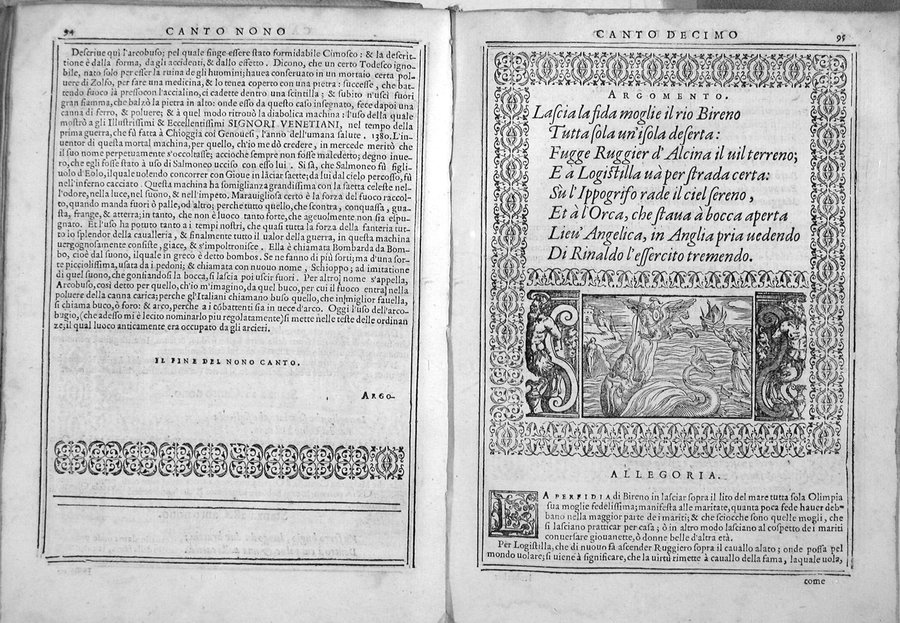 94
CANTO NONO
Descriue qui l'arcobuso; pel quale finge essere stato formidabile Cimosco: & la descrit-
tione è dalla forma, dagli accidenti, & dallo effetto. Dicono, che un certo Todesco igno-
bile, nato solo per esser la ruina degli huomini; hauea conseruato in un mortaio certa pol-
uere di Zolfo, per fare una medicina, & lo tenea coperto con una pietra: successe, che bat-
tendo fuoco là presso con l'acciaIino, ci cadette dentro una scintilla; & subito n'uscì fuori
gran fiamma, che balzò la pietra in alto: onde esso da questo caso insegnato, fece dapoi una
canna di ferro, & poluere; & à quel modo ritrouò la diabolica machina: l'uso della quale
mostrò a gli Illustrissimi & Eccellentissimi SIGNORI VENETIANI, nel tempo della
prima guerra, che fù fatta à Chioggia coi Genouesi, l'anno dell'umana salute, 1380. L'in-
uentor di questa mortal machina, per quello, ch'io mè dò credere, in mercede meritò che
il suo nome perpetuamente s'occoltasse; accioche sempre non fosse maledetto; degno inue-
ro, che egli fosse stato à uso di Salmoneo ucciso con esso lui. Si sà, che Salmoneo fù figli-
uolo d'Eolo, il quale uolendo concorrer con Gioue in lãciar saette; da lui dal cielo percosso, fù
nell'inferno cacciato. Questa machina ha somiglianza grandissima con la saetta celeste nel-
l'odore, nella luce, nel suono, & nell'impeto. Marauigliosa certo è la forza del fuoco raccol-
to, quando manda fuori ò palle, od altro; perche tutto quello, che scontra, conquassa, gua-
sta, frange, & atterra; in tanto, che non è luoco tanto forte, che ageuolmente non sia elpu-
gnato. Et l'uso ha potuto tanto a i tempi nostri, che quasi tutta la forza della fanteria tut-
to lo splendor della caualleria, & finalmente tutto il ualor della guerra, in questa machina
uergognosamente consiste, giace, & s'impoltronisce. Ella è chiamata Bombarda da Bom-
bo, cioè dal suono, il quale in greco è detto bombos. Se ne fanno di più sorti; ma d'una sor-
te picciolissima, usata da i pedoni; & chiamata con nuouo nome, Schioppo; ad imitatione
di quel suono, che gonfiandosi la bocca, si lascia poi uscir fuori. Per altro nome s'appella,
Arcobuso, così detto per quello, ch'io m'imagino, da quel buco, per cui il fuoco entra nella
poluere della canna carica; perche gl'Italiani chiamano buso quello, che in miglior fauella,
si chiama buco, ò foro: & arco, perche a i cõbattenti sia in uece d'arco. Oggi l'uso dell'arco-
bugio, (che adesso mi è lecito nominarlo piu regolatamente) si mette nelle teste delle ordinan
ze; il qual luoco anticamente era occupato da gli arcieri.
IL FINE DEL NONO CANTO.
ARGO-
CANTO DECIMO
95
ARGOMENTO.
Lascia la fida moglie il rio Bireno
Tutta sola un'isola deserta:
Fugge Ruggier d'Alcina il uil terreno;
E a Logistilla uà per strada certa:
Su l'Ippogrifo rade il ciel sereno,
Et à l'Orca, che staua à bocca aperta
Lieu' Angelica, in Anglia pria uedendo
Di Rinaldo l'essercito tremendo.
ALLEGORIA.
LA PERFIDIA di Bireno in lasciar sopra il lito del mare tutta sola Olimpia
sua moglie fedelissima; manifesta alle maritate, quanta poca fede hauer deb-
bano nella maggior parte dei mariti; & che sciocche sono quelle mogli, che
si lasciano pratticar per casa; ò in altro modo lasciano al cospetto dei mariti
conuersar giouanette, ò donne belle d'altra età.
Per Logistilla, che di nuouo fà ascender Ruggiero sopra il cauallo alato; onde possa pel
mondo uolare; si uiene à significare, che la uirtù rimette à cauallo della fama, la quale uola,
come